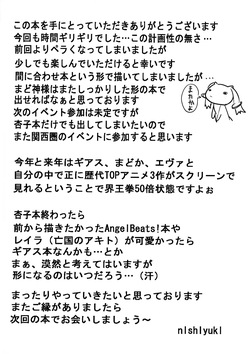 この本を手にとっていただきありがとうございます
今回も時間ギリギリでした…この計画性の無さ…
前回よりペラくなってしまいましたが
少しでも楽しんでいただけると幸いです
間に合わせ本という形で描いてしまいましたが…
まど神様はまたしっかりした形の本で
出せればなぁと思っております
次のイベント参加は未定ですが
杏子本だけでも出してしまいたいので
また関西圏のイベントに参加すると思います
またかよ
今年と来年はギアス、まどか、エヴァと
自分の中で正に歴代TOPアニメ3作がスクリーンで
見れるということで界王拳50倍状態ですよぉ
杏子本終わったら
前から描きたかったAngelBeats!本や
レイラ（亡国のアキト）が可愛かったら
ギアス本なんかも…とか
まぁ、漠然と考えてはいますが
形になるのはいつだろう…（汗）
まったりやっていきたいと思っております
またご縁がありましたら
次回の本でお会いしましょう～
nishiyuki